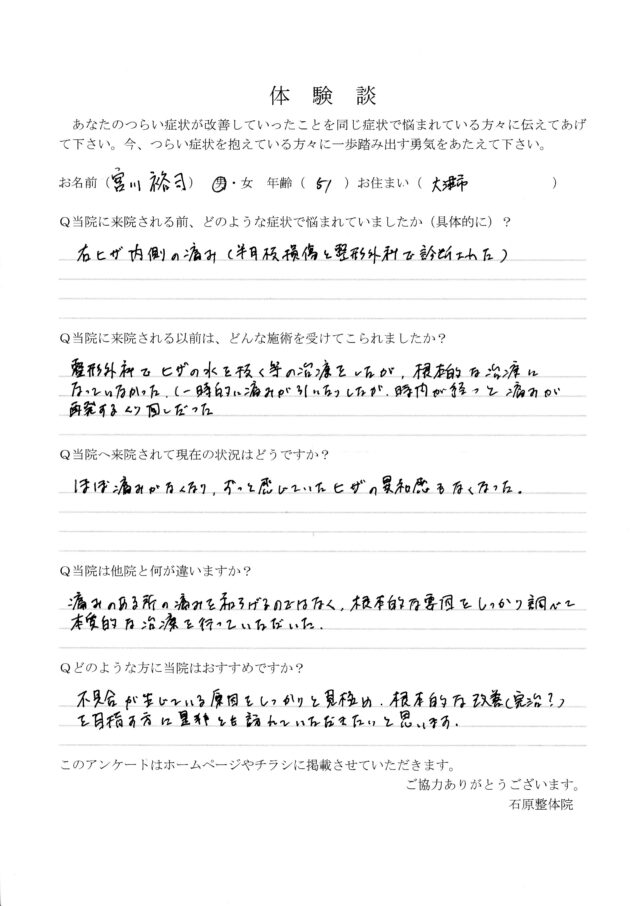 体 験 談
あなたのつらい症状が改善していったことを同じ症状で悩まれている方々に伝えてあげ
て下さい。今、つらい症状を抱えている方々に一歩踏み出す勇気をあたえて下さい。
お名前（宮川 裕司） 男・女 年齢（ 51 ）お住まい（ 大津市 ）
Ｑ当院に来院される前、どのような症状で悩まれていましたか（具体的に）？
右ヒザ内側の痛み（半月板損傷と整形外科で診断された）
Ｑ当院に来院される以前は、どんな施術を受けてこられましたか？
整形外科でヒザの水を抜く等の治療をしたが、根本的な治療に
なっていなかった。（一時的に痛みが引いたりしたが、時間が経つと痛みが
再発するくり回しだった
Ｑ当院へ来院されて現在の状況はどうですか？
ほぼ痛みがなくなり、ずっと感じていたヒザの異和感もなくなった。
Ｑ当院は他院と何が違いますか？
痛みのある所の痛みを和らげるのではなく、根本的な要因をしっかり調べて
本質的な治療を行っていただいた。
Ｑどのような方に当院はおすすめですか？
不具合が生じている原因をしっかりと見極め、根本的な改善（完治？）
を目指す方に是非とも訪れていただきたいと思います。
このアンケートはホームページやチラシに掲載させていただきます。
ご協力ありがとうございます。
石原整体院